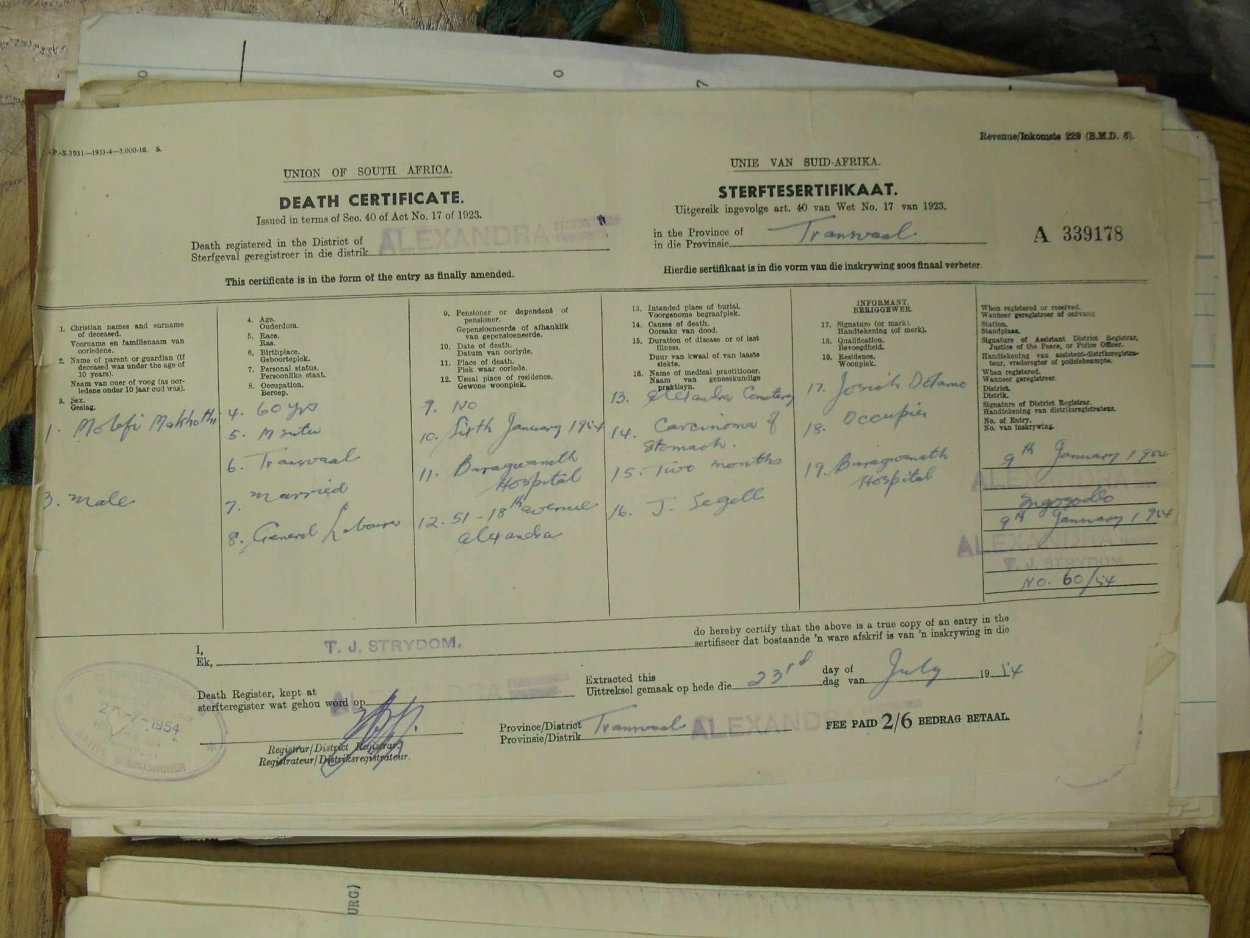 Revenue/Inkomste 229 (B.M.D. 6).
UNION OF SOUTH AFRICA.
DEATH CERTIFICATE.
Issued in terms of Sec. 40 of Act No. 17 of 1923.
UNIE VAN SUID-AFRIKA.
STERFTESERTIFIKAAT.
Uitgereik ingevolge art. 40 van Wet No. 17 van 1923.
Death registered in the District of
Sterfgeval geregistreer in die distrik ALEXANDRA
in the Province of
in die Provinsie Transvaal
A 339178
This certificate is in the form of the entry as finally amended.
Hierdie sertifikaat is in die vorm van die inskrywing soos finaal verbeter.
1. Christian names and surname
of deceased.
Voorname en familienaam van
oorledene.
2. Name of parent or guardian (if
deceased was under the age of
10 years).
Naam van ouer of voog (as oor-
ledene onder 10 jaar oud was).
3. Sex.
Geslag.
1. Molefi Makhothi
3. Male
4. Age.
Ouderdom.
5. Race.
Ras.
6. Birthplace.
Geboorteplek.
7. Personal status.
Persoonlike staat.
8. Occupation.
Beroep.
4. 60 yrs
5. Msutu
6. Transvaal
7. Married
8. General Labourer
9. Pensioner or dependent of
pensioner.
Gepensioeneerde of afhanklik
van gepensioeneerde.
10. Date of death.
Datum van oorlyde.
11. Place of death.
Plek waar oorlede.
12. Usual place of residence.
Gewone woonplek.
9. NO
10. Sixth January 1954
11. Baragwanath
Hospital
12. 51 - 18th avenue
Alexandra
13. Intended place of burial.
Voorgenome begraafplek.
14. Causes of death.
Oorsake van dood.
15. Duration of disease or of last
illness.
Duur van kwaal of van laaste
siekte.
16. Name of medical practitioner.
Naam van geneeskundige
praktisyn.
13. Alexandra Cemetery
14. Carcinoma of
Stomach.
15. Two months
16. J. Segell
INFORMANT.
BERIGGEWER.
17. Signature (or mark).
Handtekening (of merk).
18. Qualification.
Bevoegdheid.
19. Residence.
Woonplek.
17. Josiah
18. Occupier
19. Baragwanath
Hospital
When registered or received.
Wanneer geregistreer of ontvang.
Station.
Standplaas.
Signature of Assistant District Registrar,
Justice of the Peace, or Police Officer.
Handtekening van assistent-distriksregistra-
teur, vrederegter of polisiebeampte.
When registered.
Wanneer geregistreer.
District.
Distrik.
Signature of District Registrar.
Handtekening van distriksregistrateur.
No. of Entry.
No. van inskrywing.
9th January 1954
ALEXANDRA
9th January 1954
ALEXANDRA
T. J. STRYDOM
NO. 60/54
I,
Ek, T. J. STRYDOM,
do hereby certify that the above is a true copy of an entry in the
sertifiseer dat bostaande 'n ware afskrif is van 'n inskrywing in die
Death Register, kept at
sterfteregister wat gehou word op ALEXANDRA
Extracted this
Uittreksel gemaak op hede die 23rd day of
dag van July 1954
Registrar/District Registrar.
Registrateur/Distriksregistrateur.
Province/District
Provinsie/Distrik Transvaal ALEXANDRA
FEE PAID 2/6 BEDRAG BETAAL.
-7-1954
COMMISSIONER
URG)